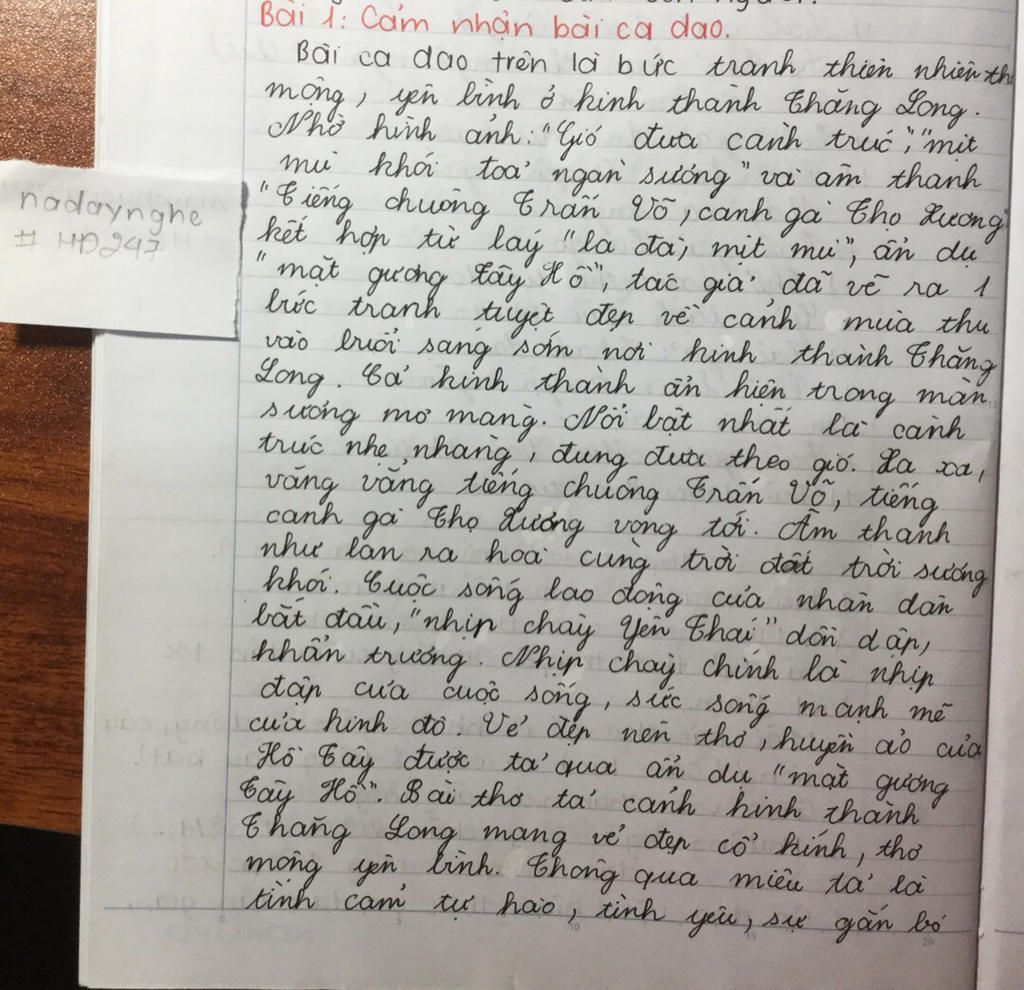 Bài 1: Cảm nhận bài ca dao.
Bài ca dao trên là bức tranh thiên nhiên thơ
mộng, yên bình ở kinh thành Thăng Long.
Nhờ hình ảnh: "Gió đưa cành trúc", "mịt
mù khói toả ngàn sương" và âm thanh
"Tiếng chuông Trấn Võ, canh gà Thọ Xương"
kết hợp từ láy "la đà, mịt mù", ẩn dụ
"mặt gương Tây Hồ", tác giả đã vẽ ra 1
bức tranh tuyệt đẹp về cảnh mùa thu
vào buổi sáng sớm nơi kinh thành Thăng
Long. Cả kinh thành ẩn hiện trong màn
sương mơ màng. Nổi bật nhất là cành
trúc nhẹ nhàng, đung đưa theo gió. Xa xa,
văng vẳng tiếng chuông Trấn Võ, tiếng
canh gà Thọ Xương vọng tới. Âm thanh
như lan ra hoà cùng trời đất trời sương
khói. Cuộc sống lao động của nhân dân
bắt đầu, "nhịp chày Yên Thái" dồn dập,
khẩn trương. Nhịp chày chính là nhịp
đập của cuộc sống, sức sống mạnh mẽ
của kinh đô. Vẻ đẹp nên thơ, huyền ảo của
Hồ Tây được tả qua ẩn dụ "mặt gương
Tây Hồ". Bài thơ tả cảnh kinh thành
Thăng Long mang vẻ đẹp cổ kính, thơ
mộng yên bình. Thông qua miêu tả là
tình cảm tự hào, tình yêu, sự gắn bó
nadaynghe
# HĐ247